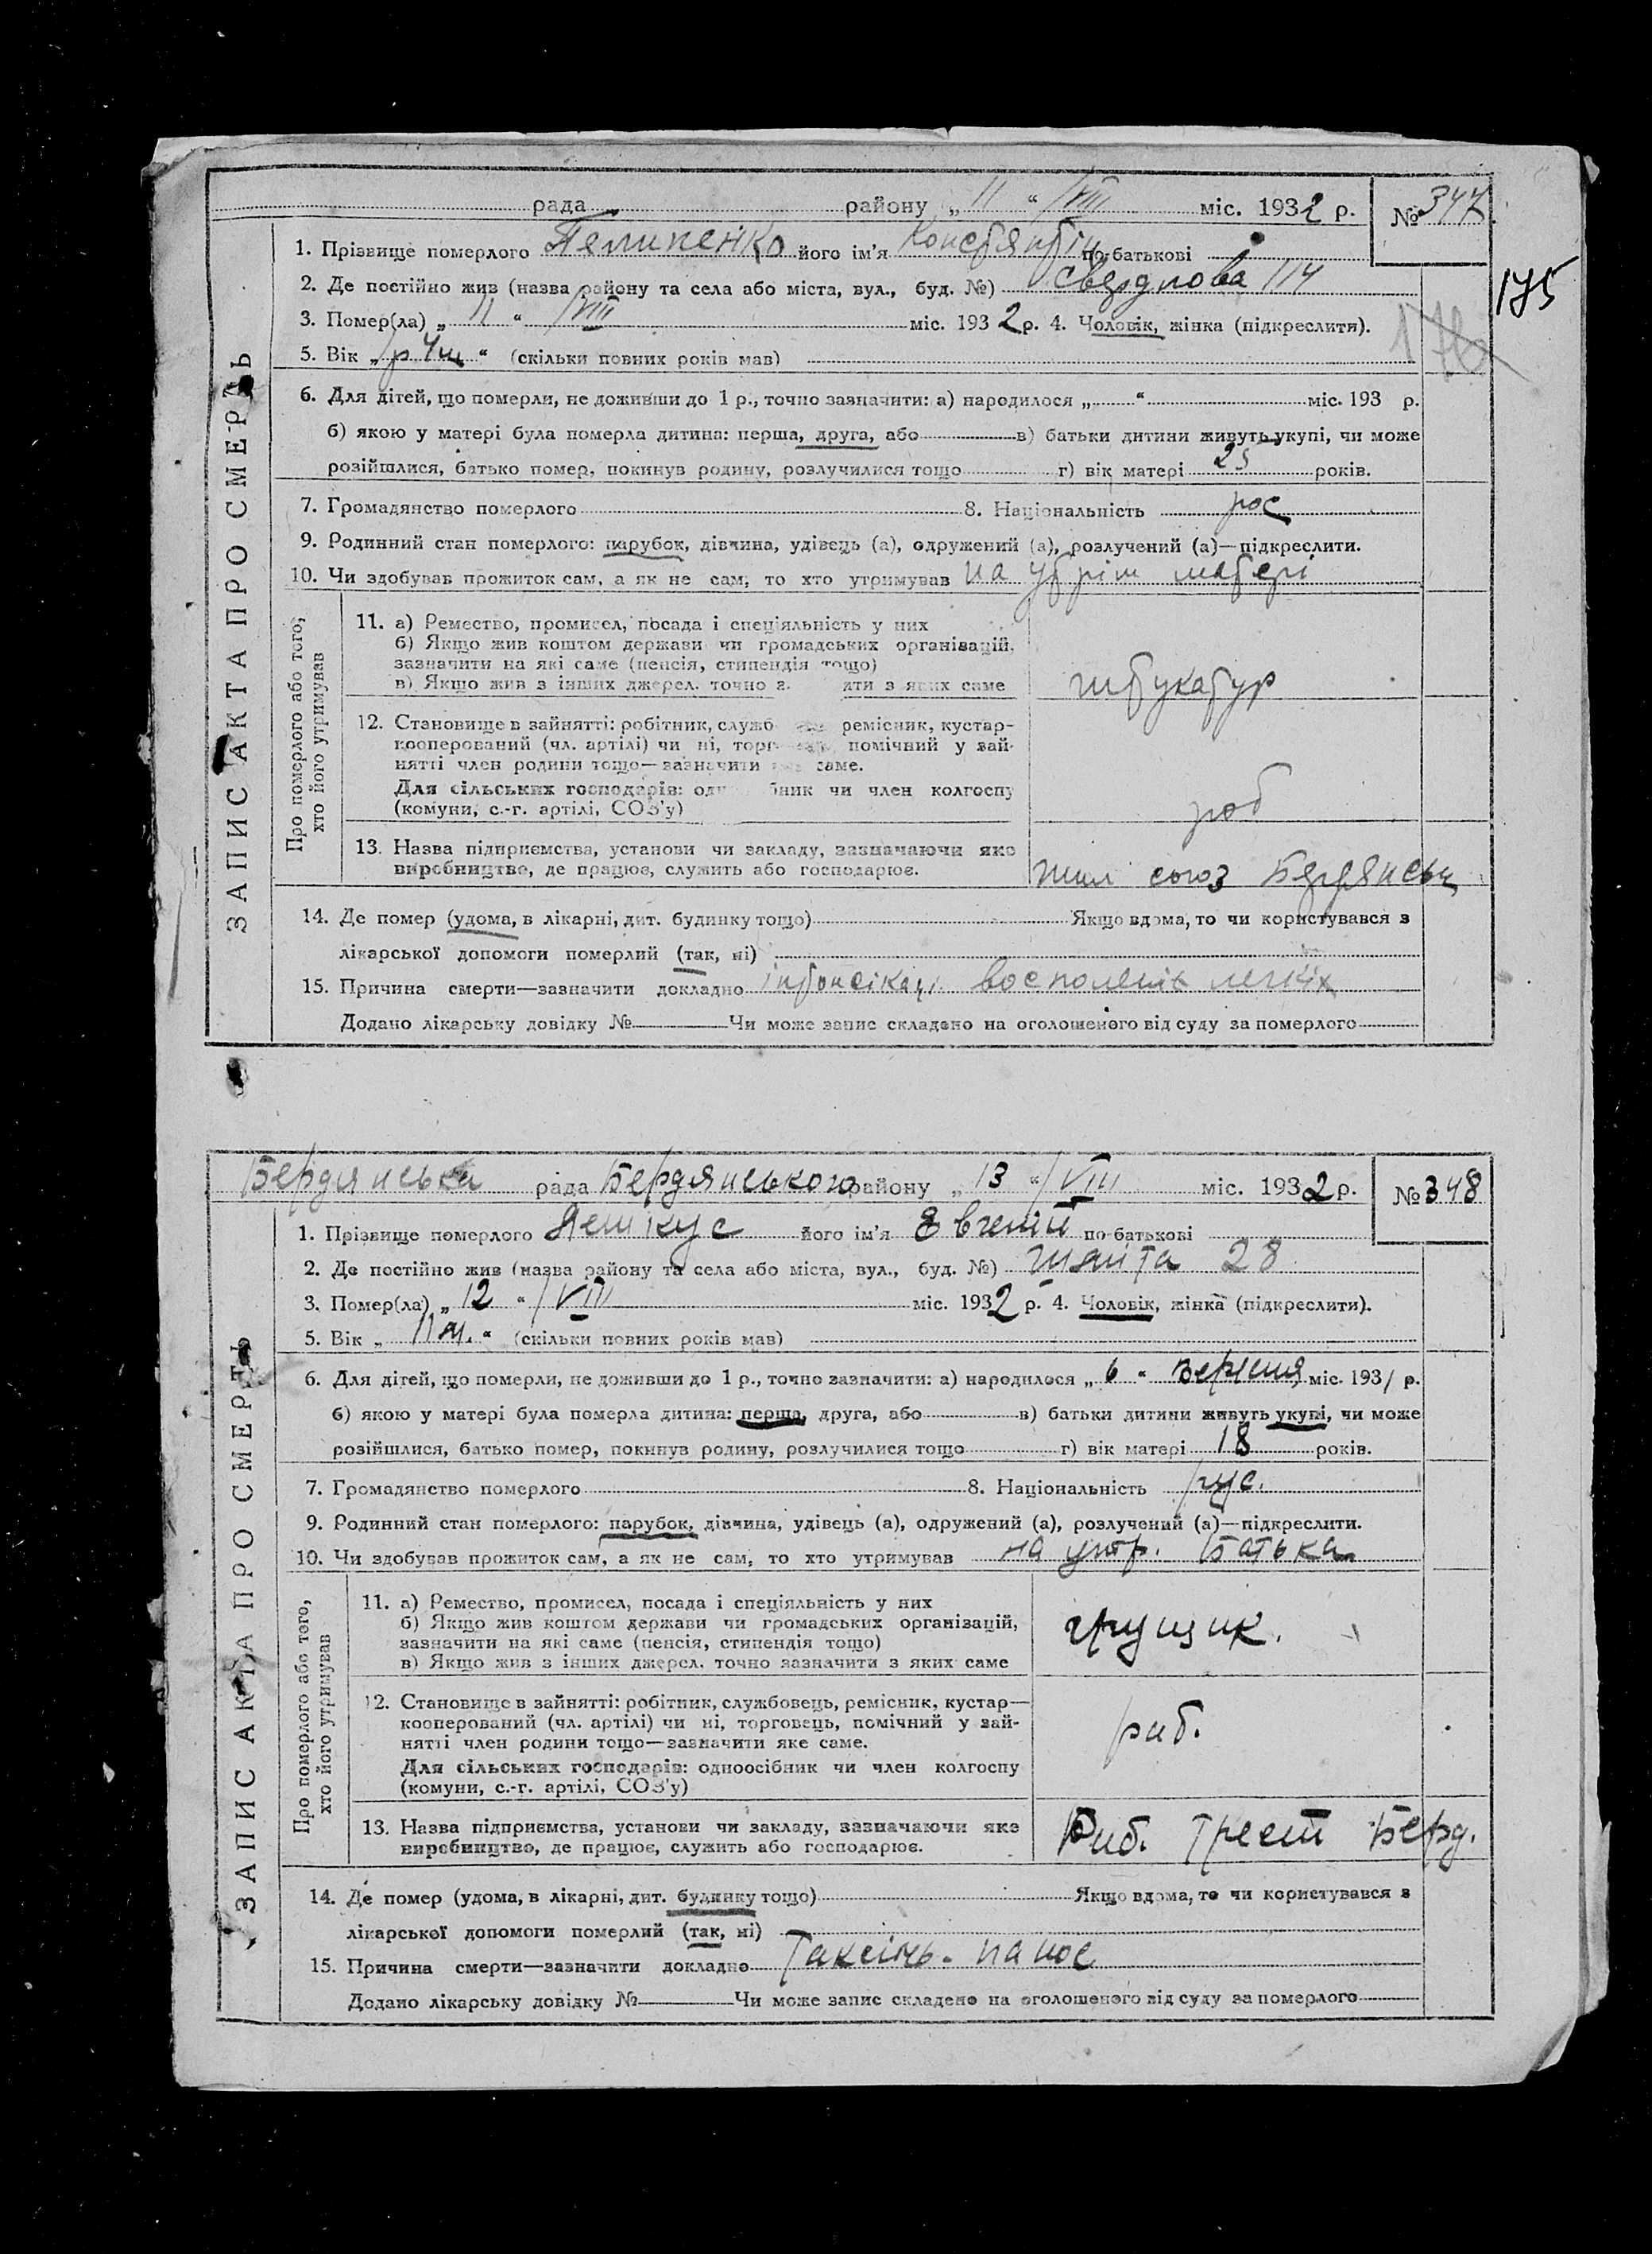 рада района „ 11 “ VIII міс. 1932 р. № 347
175
1. Прізвище померлого його ім'я Константін по-батькові
2. Де постійно жив (назва району та села або міста, вул., буд. №) Свердлова 114
3. Помер(ла) „ 11 “ VIII міс. 1932 р. 4. Чоловік, жінка (підкреслити).
5. Вік „ “ (скільки повних років мав)
6. Для дітей, що померли, не доживши до 1 р., точно зазначити: а) народилося „ “ міс. 193 р.
б) якою у матері була померла дитина: перша, друга, або в) батьки дитини живуть укупі, чи може
розійшлися, батько помер, покинув родину, розлучилися тощо г) вік матері 25 років.
7. Громадянство померлого 8. Національність рос
9. Родинний стан померлого: парубок, дівчина, удівець (а), одружений (а), розлучений (а)—підкреслити.
10. Чи здобував прожиток сам, а як не сам, то хто утримував на утрім матері
ЗАПИС АКТА ПРО СМЕРТЬ
Про померлого або того, хто його утримував
11. а) Ремество, промисел, посада і спеціяльність у них
б) Якщо жив коштом держави чи громадських організацій,
зазначити на які саме (пенсія, стипендія тощо)
в) Якщо жив з інших джерел, точно з. ити з яких саме
штукатур
12. Становище в зайнятті: робітник, служб ремісник, кустар-
кооперований (чл. артілі) чи ні, торг помічний у зай-
нятті член родини тощо—зазначити саме.
Для сільських господарів: од бник чи член колгоспу
(комуни, с.-г. артілі, СОЗ'у)
роб
13. Назва підприємства, установи чи закладу, зазначаючи яке
виробництво, де працює, служить або господарює.
жил союз Бердянськ
14. Де помер (удома, в лікарні, дит. будинку тощо) Якщо вдома, то чи користувався з
лікарської допомоги померлий (так, ні)
15. Причина смерти—зазначити докладно інтоксікаці воспоління легких
Додано лікарську довідку № Чи може запис складено на оголошеного від суду за померлого
Бердянська рада Бердянського району „ 13 “ VIII міс. 1932 р. № 348
1. Прізвище померлого його ім'я Євгеній по-батькові
2. Де постійно жив (назва району та села або міста, вул., буд. №) 28
3. Помер(ла) „ 12 “ VIII міс. 1932 р. 4. Чоловік, жінка (підкреслити).
5. Вік „ 11 м. “ (скільки повних років мав)
6. Для дітей, що померли, не доживши до 1 р., точно зазначити: а) народилося „ 6 “ Вересня міс. 1931 р.
б) якою у матері була померла дитина: перша, друга, або в) батьки дитини живуть укупі, чи може
розійшлися, батько помер, покинув родину, розлучилися тощо г) вік матері 18 років.
7. Громадянство померлого 8. Національність рус.
9. Родинний стан померлого: парубок, дівчина, удівець (а), одружений (а), розлучений (а)—підкреслити.
10. Чи здобував прожиток сам, а як не сам, то хто утримував на утр. батька
ЗАПИС АКТА ПРО СМЕРТЬ
Про померлого або того, хто його утримував
11. а) Ремество, промисел, посада і спеціяльність у них
б) Якщо жив коштом держави чи громадських організацій,
зазначити на які саме (пенсія, стипендія тощо)
в) Якщо жив з інших джерел, точно зазначити з яких саме
грущик.
12. Становище в зайнятті: робітник, службовець, ремісник, кустар—
кооперований (чл. артілі) чи ні, торговець, помічний у зай-
нятті член родини тощо—зазначити яке саме.
Для сільських господарів: одноосібник чи член колгоспу
(комуни, с.-г. артілі, СОЗ'у)
раб.
13. Назва підприємства, установи чи закладу, зазначаючи яке
виробництво, де працює, служить або господарює.
Риб. Трест Берд.
14. Де помер (удома, в лікарні, дит. будинку тощо) Якщо вдома, то чи користувався з
лікарської допомоги померлий (так, ні)
15. Причина смерти—зазначити докладно понос
Додано лікарську довідку № Чи може запис складено на оголошеного від суду за померлого